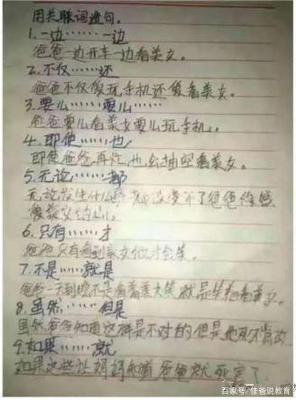 用关联词造句。
1.一边……一边
爸爸一边开车一边看美女。
2.不仅……还
爸爸不仅像玩手机还像看美女。
3.要么……要么……
爸爸要么看美女要么玩手机。
4.即使……也
即使爸爸再忙也会抽空看美女。
5.无论……都
无论发生什么都改变不了爸爸
6.只有……才
爸爸只有看到美女他才会笑。
7.不是……就是
爸爸一天到晚不是看就是看美女。
8.虽然……但是
虽然爸爸知道这样是不对的但是他
9.如果……就
如果这些让妈妈知道爸爸就死定了
百家号/佳爸说教育